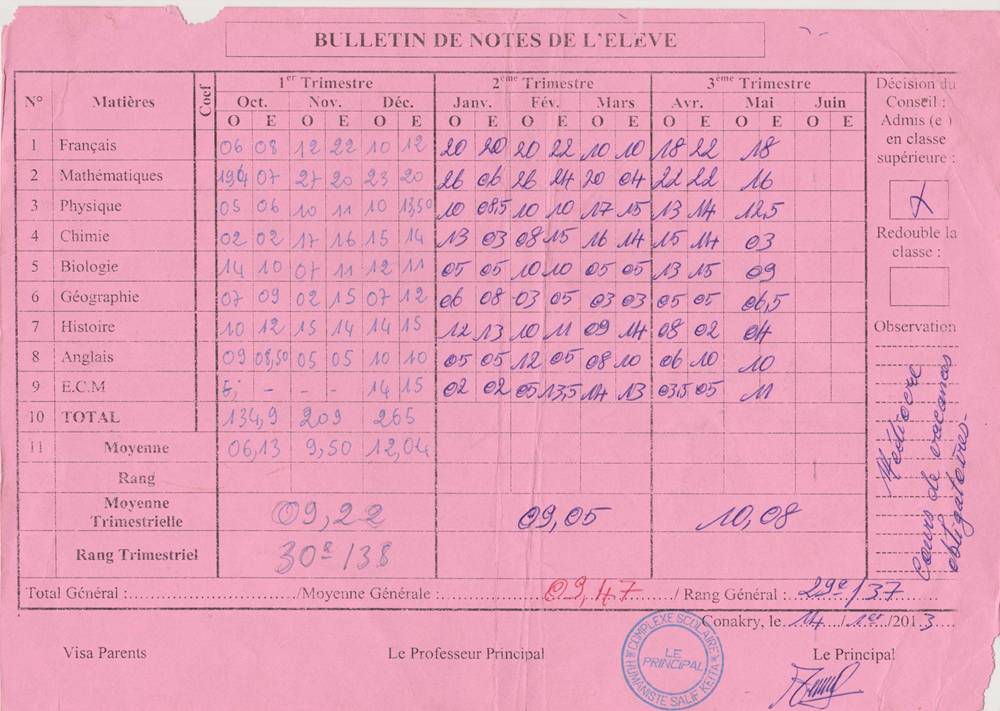 BULLETIN DE NOTES DE L'ELEVE
N° Matières Coef 1er Trimestre 2ème Trimestre 3ème Trimestre
Oct. Nov. Déc. Janv. Fév. Mars Avr. Mai Juin
O E O E O E O E O E O E O E O E O E
1 Français 06 08 12 22 10 12 20 20 20 22 10 10 18 22 18
2 Mathématiques 07 27 20 23 20 26 06 26 24 20 04 22 22 16
3 Physique 05 06 10 11 10 13,50 10 08,5 10 10 17 15 13 14 12,5
4 Chimie 02 02 17 16 15 14 13 03 08 15 16 14 15 14 03
5 Biologie 14 10 07 11 12 11 05 05 10 10 05 05 13 15 09
6 Géographie 07 09 02 15 07 12 06 08 03 05 03 03 05 05 06,5
7 Histoire 10 12 15 14 14 15 12 13 10 11 09 14 08 02 04
8 Anglais 09 08,50 05 05 10 10 05 05 12 05 08 10 06 10 10
9 E.C.M - - - 14 15 02 02 05 13,5 14 13 03,5 05 11
10 TOTAL 134,9 209 265
11 Moyenne 06,13 9,50 12,04
Rang
Moyenne
Trimestrielle 09,22 09,05 10,08
Rang Trimestriel 30e/38
Décision du
Conseil :
Admis (e )
en classe
supérieure :
X
Redouble la
classe :
Observation
Médiocre
Cours de vacances
obligatoires.
Total Général :................................/Moyenne Générale :............09,47......../ Rang Général :..29e/37........
Conakry, le .14../.1er../2013....
Visa Parents Le Professeur Principal Le Principal
COMPLEXE SCOLAIRE
LE
PRINCIPAL
HUMANISTE SALIF KEITA